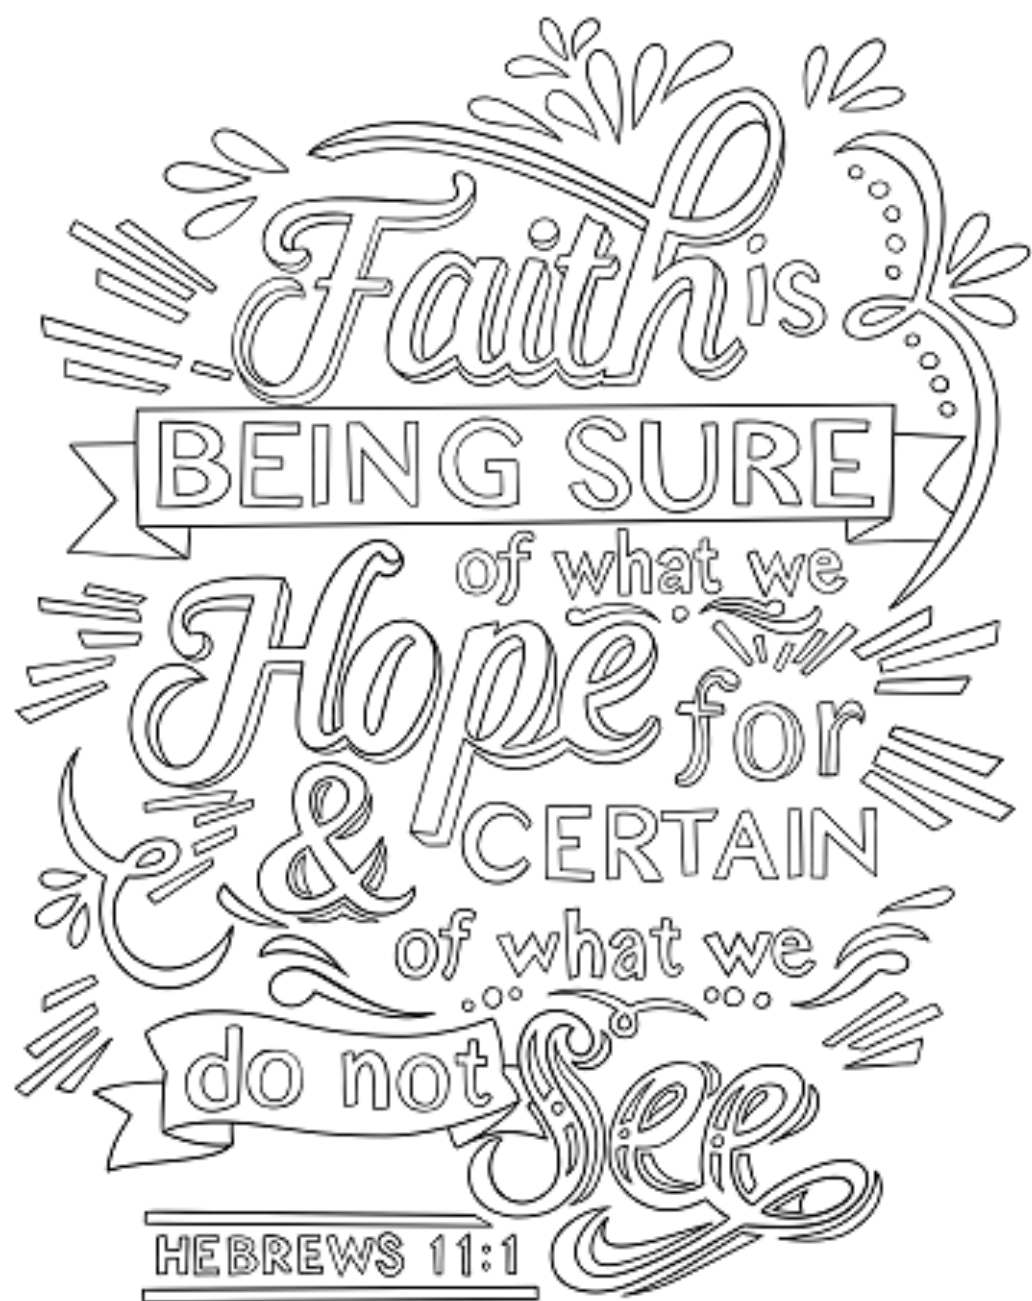 Faith is
BEING SURE
of what we
Hope for
& CERTAIN
of what we
do not See
HEBREWS 11:1